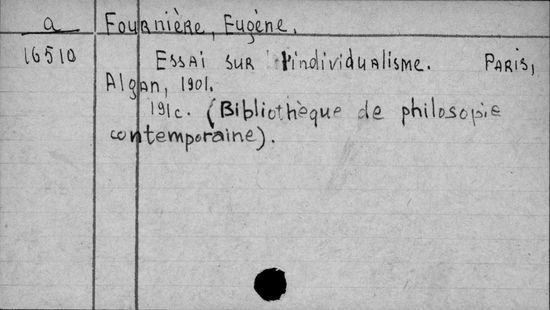 a Fournière, Eugène.
16510 Essai sur l'individualisme. Paris,
Algan, 1901.
191c. (Bibliothèque de philosopie
contemporaine).